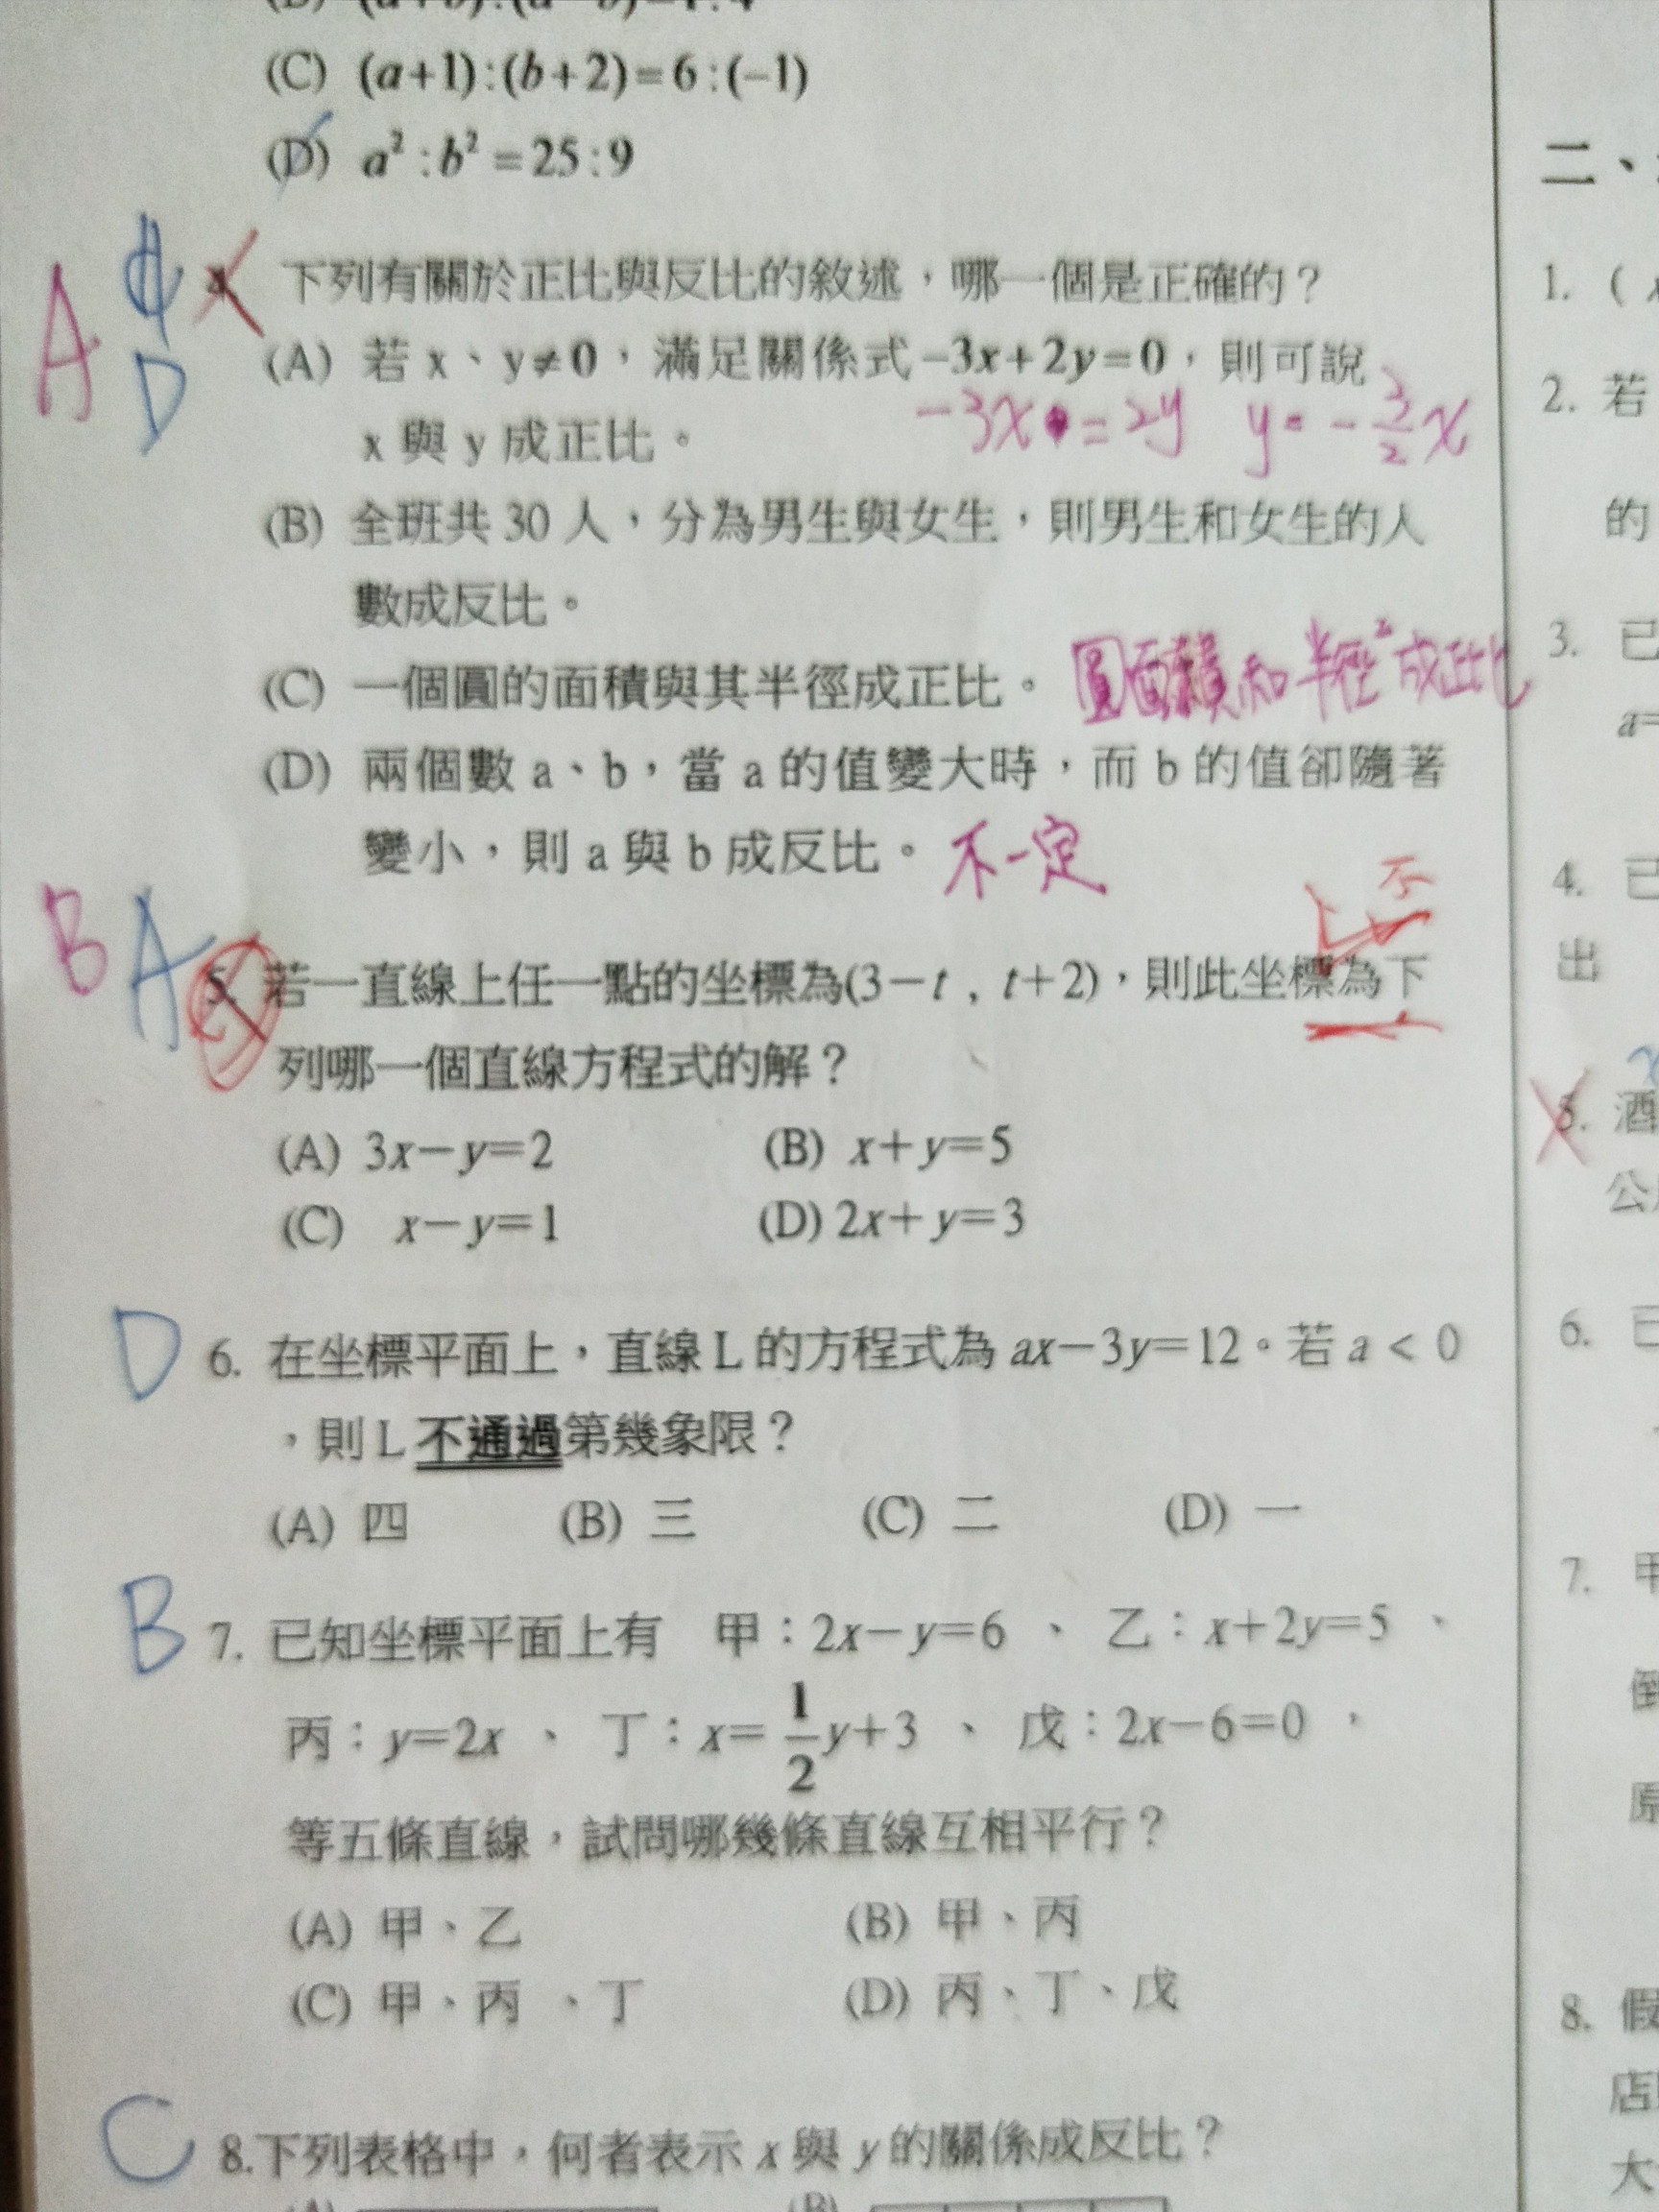 (C) (a+1):(b+2)=6:(−1)
(D) a²:b²=25:9
二、
A
D
下列有關於正比與反比的敘述，哪一個是正確的？
(A) 若 x、y≠0，滿足關係式−3x+2y=0，則可說
x 與 y 成正比。
−3x = 2y y = −3/2 x
(B) 全班共 30 人，分為男生與女生，則男生和女生的人
數成反比。
(C) 一個圓的面積與其半徑成正比。 圓面積和半徑²成正比
(D) 兩個數 a、b，當 a 的值變大時，而 b 的值卻隨著
變小，則 a 與 b 成反比。 不一定
B A
5. 若一直線上任一點的坐標為(3−t , t+2)，則此坐標為下
列哪一個直線方程式的解？
(A) 3x−y=2 (B) x+y=5
(C) x−y=1 (D) 2x+y=3
D 6. 在坐標平面上，直線 L 的方程式為 ax−3y=12。若 a < 0
，則 L 不通過第幾象限？
(A) 四 (B) 三 (C) 二 (D) 一
B 7. 已知坐標平面上有 甲：2x−y=6 、 乙：x+2y=5 、
丙：y=2x 、 丁：x= 1/2 y+3 、 戊：2x−6=0 ，
等五條直線，試問哪幾條直線互相平行？
(A) 甲、乙 (B) 甲、丙
(C) 甲、丙 、丁 (D) 丙、丁、戊
C 8.下列表格中，何者表示 x 與 y 的關係成反比？
(A) (B)
1. (
2. 若
的
3. 已
a=
4. 已
出
5. 酒
公
6. 已
7. 甲
倒
原
8. 假
店
大